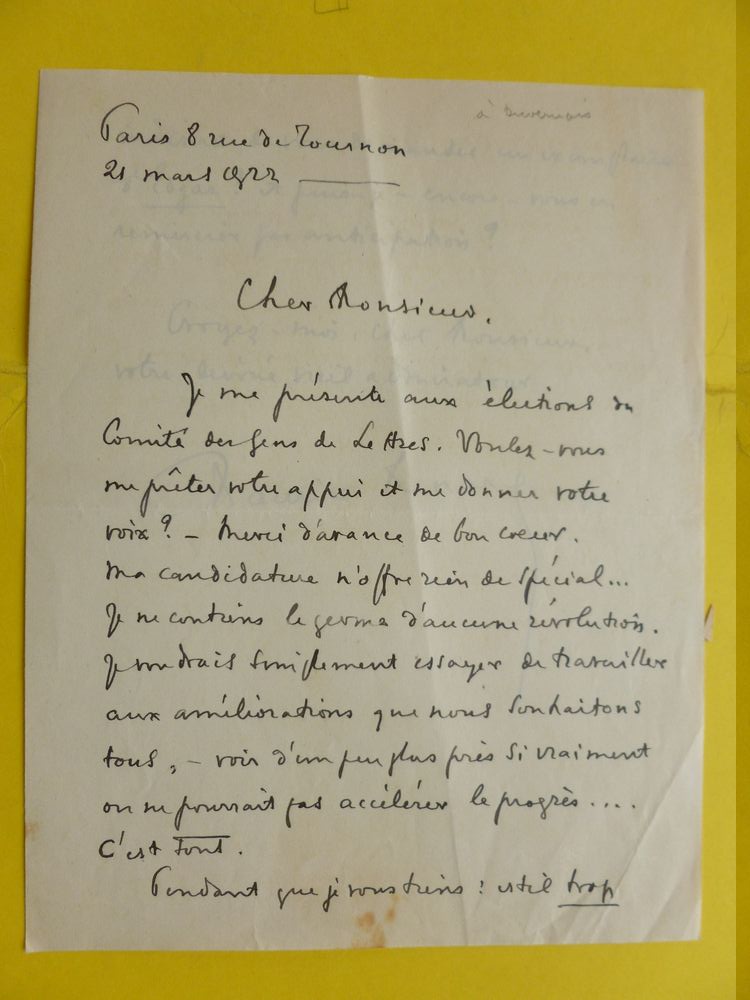 à Duvernois
Paris 8 rue de Tournon
21 mars 1922
Cher Monsieur,
Je me présente aux élections du
Comité des Gens de Lettres. Voulez-vous
me prêter votre appui et me donner votre
voix ? — Merci d'avance de bon coeur.
Ma candidature n'offre rien de spécial...
Je ne contiens le germe d'aucune révolution.
Je voudrais simplement essayer de travailler
aux améliorations que nous souhaitons
tous, — voir d'un peu plus près si vraiment
on ne pourrait pas accélérer le progrès....
C'est tout.
Pendant que je vous tiens : est-il trop